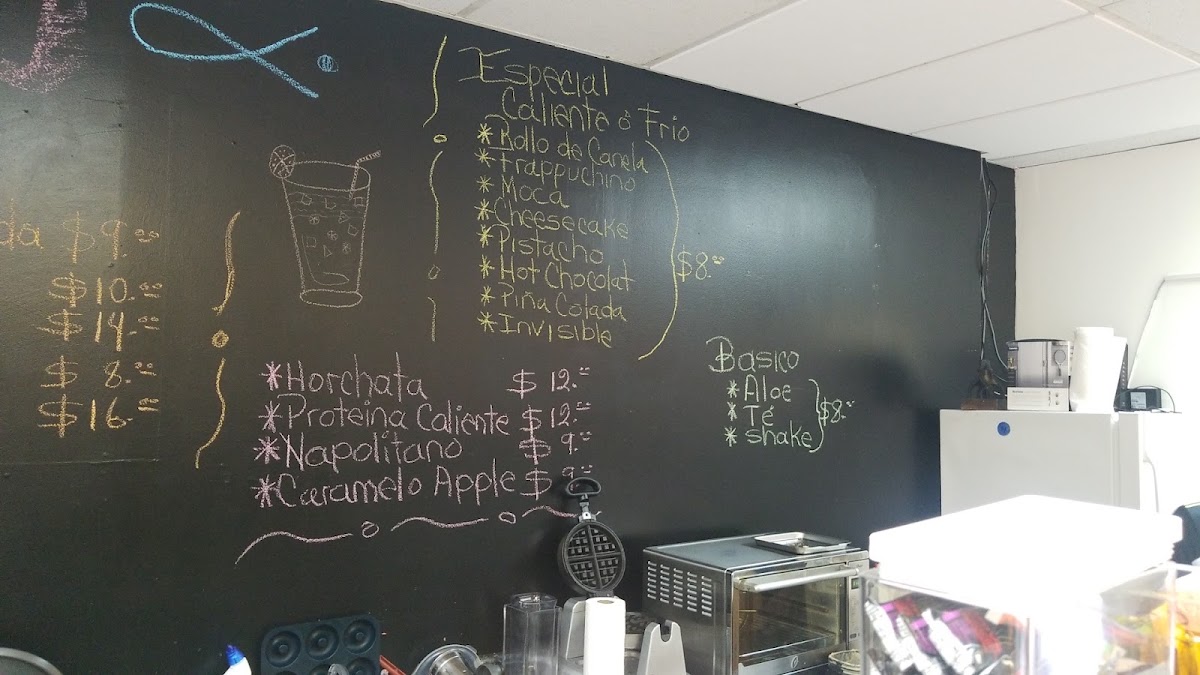 da $9.00
$10.00
$14.00
$8.00
$16.00
Especial
Caliente ó Frio
*Rollo de Canela
*Frappuchino
*Moca
*Cheesecake
*Pistacho
*Hot Chocolat
*Piña Colada
*Invisible
$8.00
*Horchata $12.00
*Proteina Caliente $12.00
*Napolitano $9.00
*Caramelo Apple $9.00
Basico
*Aloe
*Té
*shake
$8.00